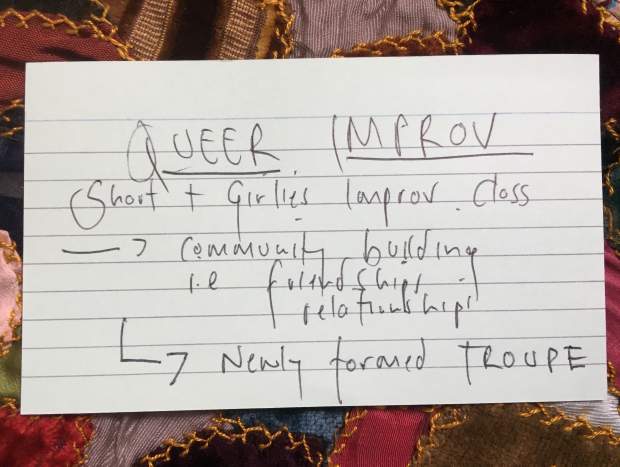 QUEER IMPROV
Short + Girlies Improv Class
→ community building
i.e friendships
relationships
↳ Newly formed TROUPE